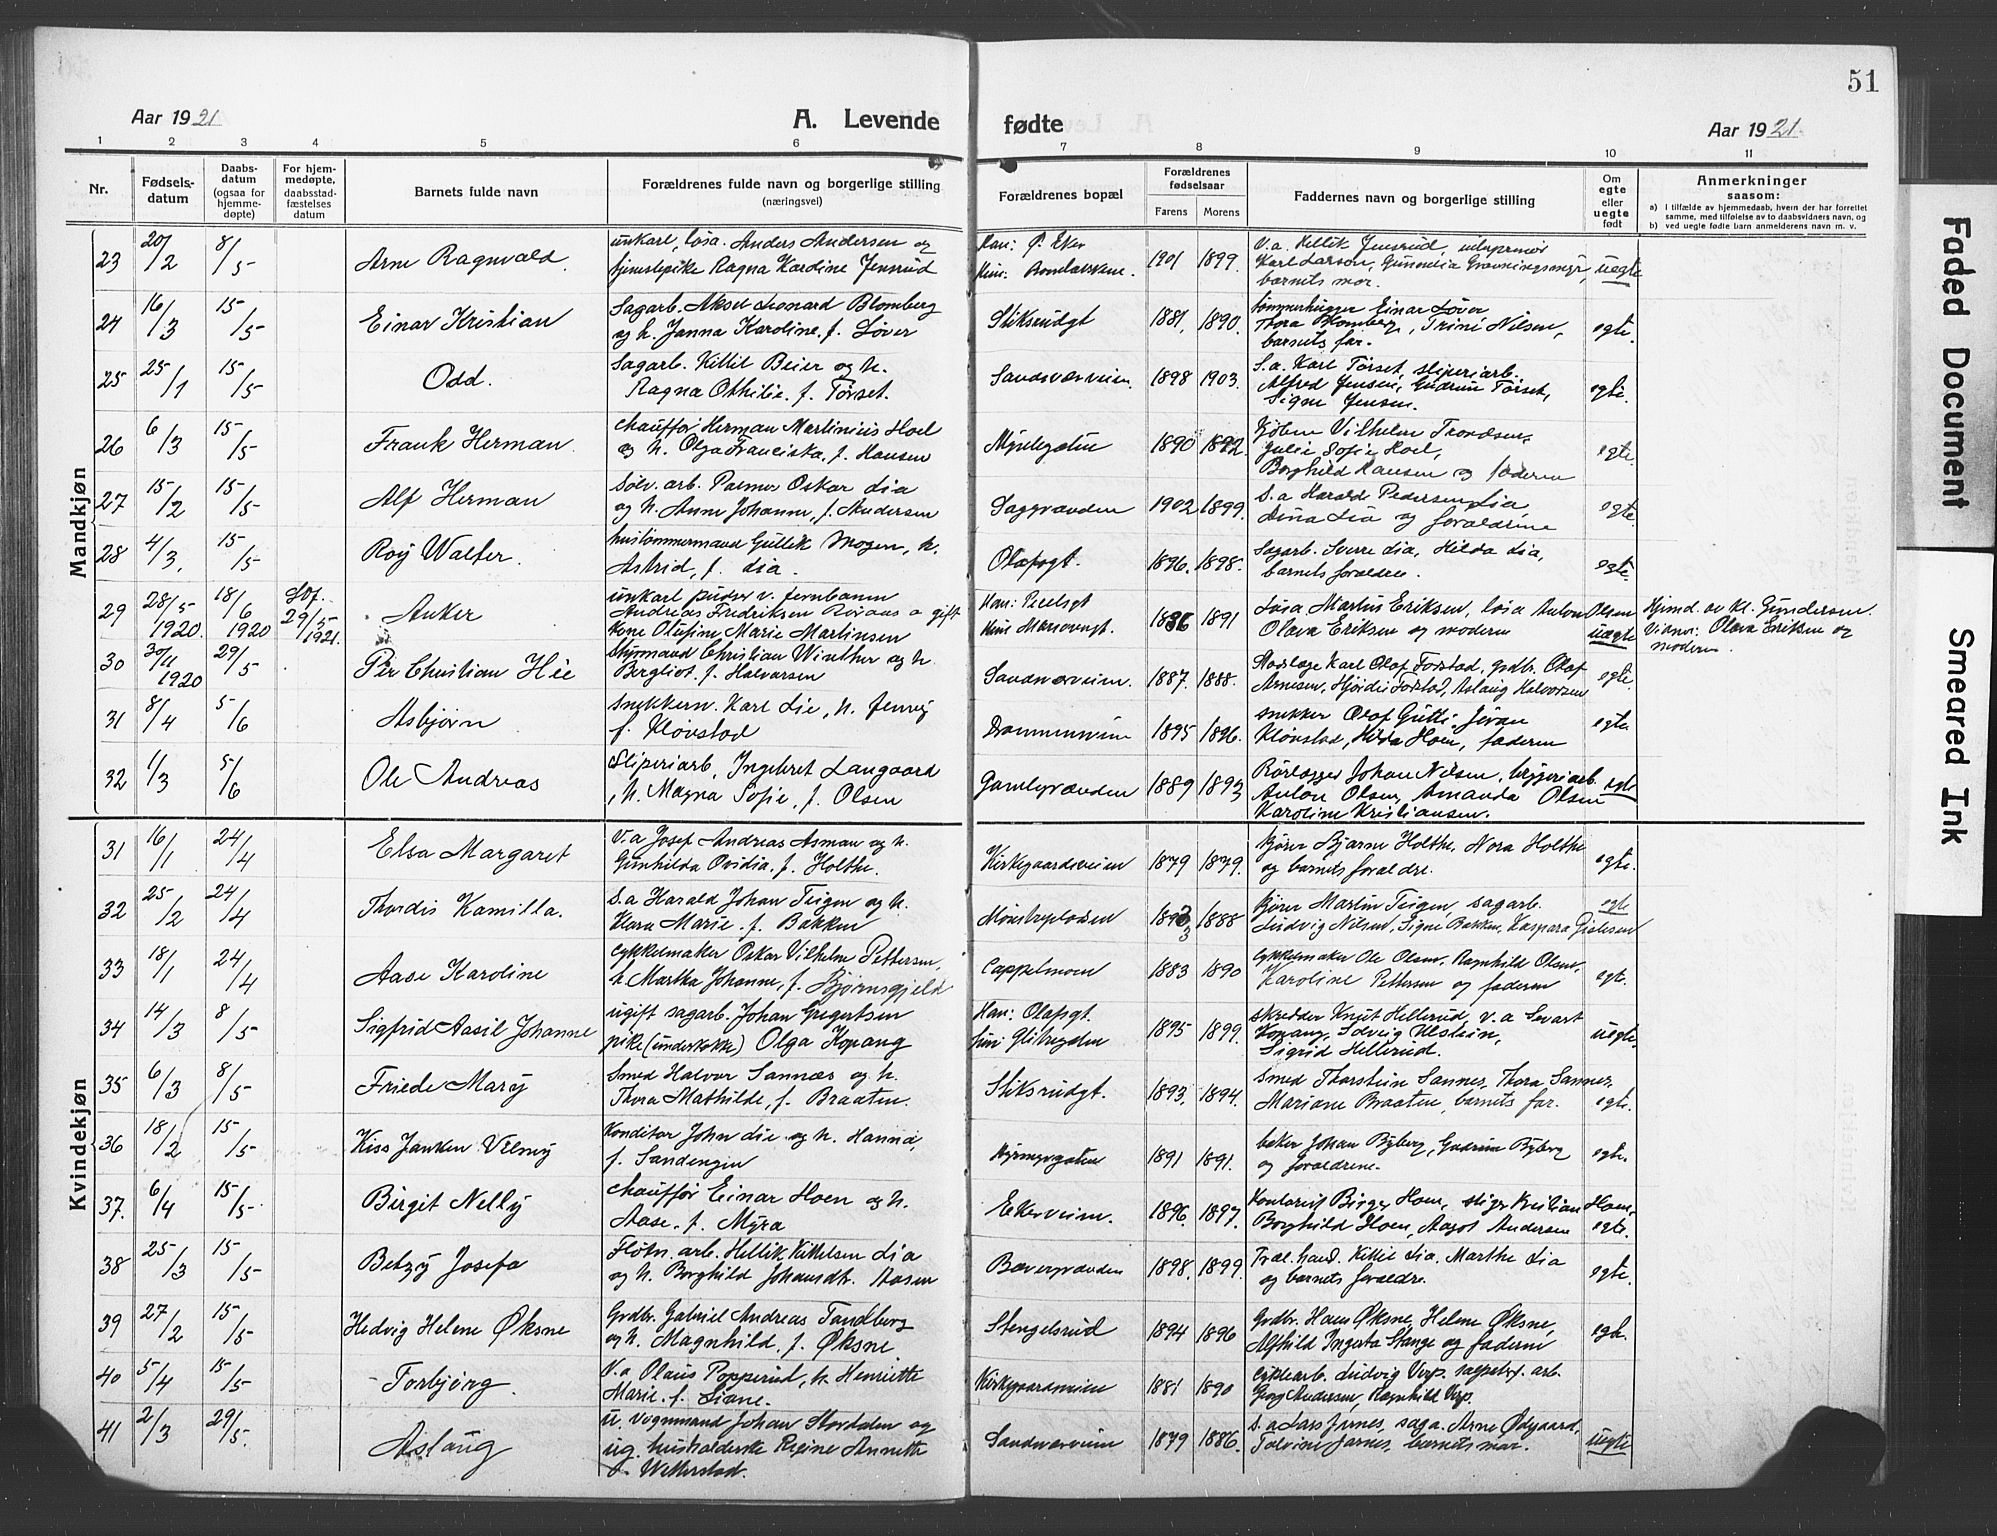 51
Aar 1921
A. Levende
fødte
Aar 1921
1 2 3 4 5 6 7 8 9 10 11
Nr.
Fødsels-
datum
Daabs-
datum
(ogsaa for
hjemme-
døpte)
For hjem-
medøpte,
daabsstad-
fæstelses
datum
Barnets fulde navn
Forældrenes fulde navn og borgerlige stilling
(næringsvei)
Forældrenes bopæl
Forældrenes
fødselsaar
Farens Morens
Faddernes navn og borgerlige stilling
Om
egte
eller
uegte
født
Anmerkninger
saasom:
a) I tilfælde av hjemmedaab, hvem der har forrettet
samme, med tilføielse av to daabsvidners navn, og
b) ved uegte fødte barn anmelderens navn m. v.
Mandkjøn
23 20/2 8/5 Arne Ragnvald.
unkarl, løsa. Anders Andersen og
tjenestepike Ragna Kardine Jensrud
Han: Ø. Eker
1901 1899.
V.a. Kellik Jensrud,
Karl Larsen,
barnets mor.
uegte
24 16/3 15/5 Einar Kristian
Sagarb. Aksel Leonard Blomberg
og h. Janna Karoline, f. Løver
Stiksrudgt
1881, 1890.
tømmerhugger Einar Løver
Thora Blomberg, Trine Nilsen,
barnets far.
egte.
25 25/1 15/5 Odd.
Sagarb. Kittil Beier og h.
Ragna Othilie. f. Tørset.
Sandsværveien.
1898 1903.
S.a. Karl Tørset, sliperiarb.
Alfred Jensen, Gudrun Tørset,
Signe Jensen.
egte.
26 6/3 15/5 Frank Herman
chauffør Herman Martinius Hoel
og h. Olga Franciska, f. Hansen
Myntegaten
1890 1892.
Kjøbm Vilhelm Trondsen,
Julie Sofie Hoel,
Borghild Hansen og faderen
egte.
27 15/2 15/5 Alf Herman
Sølv. arb. Palmer Oskar Lia
og h. Anne Johanne, f. Andersen
Saggrænden
1902 1899.
S.a Harald Pedersen Lia,
Dina Lia og forældrene
egte.
28 4/3. 15/5 Roy Walter.
hustømmermand Gullik Mogen, h.
Astrid, f. Lia.
Olafsgt.
1896. 1898.
Sagarb. Sverre Lia, Hilda Lia,
barnets forældre.
egte.
29 28/5 1920. 18/6 1920 29/5 1921. Anker
unkarl pudser v. jernbanen
Andreas Fredriksen Røraas o gift
kone Olufine Marie Martinsen
1886 1891
Løsa Martin Eriksen, løsa Anton Olsen
Olava Eriksen og moderen
uægte
Hjemd. av kl. Gundersen
Vidner: Olava Eriksen og
moderen.
30 30/11 1920 29/5 Per Christian Hie
Styrmand Christian Winther og h.
Bergliot. f. Halvorsen
Sandsværveien.
1887. 1888.
Karl Olaf Forstad, grdbr. Olaf
Arnesen, Hjørdis Forstad, Aslaug Halvorsen
egte.
31 8/4 5/6 Asbjørn
snekkern. Karl Lie, h. Jenny
f. Kløvstad
Drammenveien
1895 1896.
snekker Olaf Gutte, Johan
Kløvstad, Hilda Hoen, faderen
egte.
32 1/3 5/6 Ole Andreas
Sliperiarb, Ingebret Langaard
, h. Magna Sofie, f. Olsen
Gamlegrænden
1889 1893
Rørlegger Johan Nilsen, bryggeriarb.
Anton Olsen, Amanda Olsen
Karoline Kristiansen.
egte
Kvindekjøn
31 16/1 24/4 Elsa Margaret
V.a Josef Andreas Asman og h.
Gunhilda Ovidia. f. Holthe.
Kirkegaardsveien
1879 1879.
kjører Bjarne Holthe, Nora Holthe
og barnets forældre.
egte.
32 25/2 24/4 Thordis Kamilla.
S.a Harald Johan Teigen og h.
Klara Marie. f. Bakken
1893 1888
kjører Martin Teigen, sagarb.
Ludvig Nilsen, Signe Bakken, Kaspara Gislesen
egte
33 18/1 24/4 Aase Karoline
cykkelmaker Oskar Vilhelm Pettersen,
h. Martha Johanne, f. Bjørnsgjeld
Cappelmoen
1883 1890
cykkelmaker Ole Olsen, Ragnhild Olsen,
Karoline Pettersen og faderen
egte.
34 14/3 8/5 Sigfrid Aasil Johanne
ugift sagarb. Johan Gregertsen
pike (underkokke) Olga Kopang
Han: Olafsgt.
1895 1899.
skredder Knut Hellerud, V.a Sevart
Kopang, Solveig Ulstein,
Sigrid Hellerud.
uegte.
35 6/3 8/5 Friede Mary
Smed Halvor Sannæs og h.
Thora Mathilde, f. Braaten.
Stiksrudgt.
1893. 1894.
Smed Thorstein Sannes, Thora Sannes,
Mariane Braaten, barnets far.
egte.
36 18/2 15/5 Kiss Janken Vilmy
Konditor John Lie og h. Hanna,
f. Sandengen
1891 1891.
baker Johan Byberg, Gudrun Byberg
og forældrene.
egte.
37. 6/4 15/5 Birgit Nelly
chauffør Einar Hoen og h.
Aase. f. Myra
Ekerveien.
1896. 1897.
Kontorist Birger Hoen, stiger Kristian Hoen,
Borghild Hoen, Aagot Andersen
egte.
38 25/3 15/5 Betzy Josefa
Fløtn. arb. Hellik Kittelsen Lia
og h. Borghild Johansdtr. Aasen
Bævergrænden
1898. 1899.
Træl. hand. Kittil Lia. Marthe Lia
og barnets forældre.
egte.
39 27/2 15/5 Hedvig Helene Øksne
Grdbr. Gabriel Andreas Tandberg
og h. Magnhild. f. Øksne
Stengelsrud
1894 1896
Grdbr. Hans Øksne, Helene Øksne,
Alfhild Ingerta Stange og faderen
egte.
40 5/4 15/5 Torbjørg.
V.a. Olaus Popperud, h. Henriette
Marie. f. Liane.
Kirkegaardsveien
1881 1890
cyklearb. Ludvig Verp. salpeterf. arb.
Georg Andersen, Ragnhild Verp.
41 2/3 29/5. Aslaug
u. vognmand Johan Stordalen og
ug. husholderske Regine Annette
f. Wetterstad.
Sandsværveien
1879 1886.
S. a Lars Jarnes, saga. Arne Ødegaard,
Tolvine Jarnes, barnets mor.
uegte
Faded Document
Smeared Ink